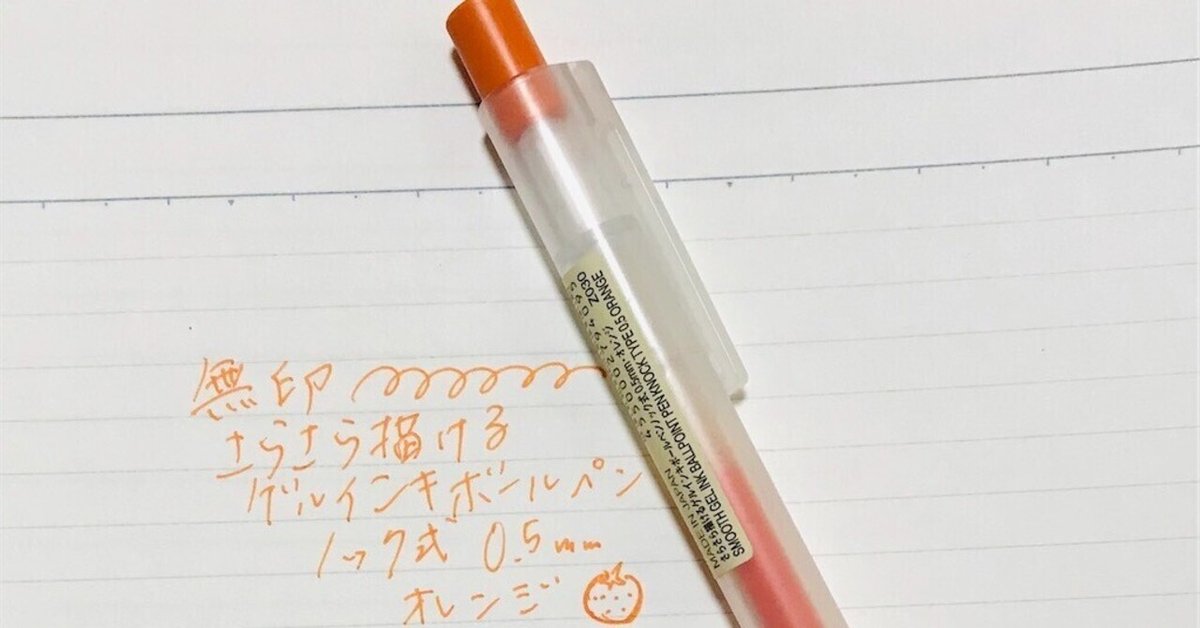 無印
さらさら描ける
ゲルインキボールペン
ノック式 0.5mm
オレンジ
MADE IN JAPAN
さらさら描けるゲルインキボールペンノック式0.5mm・オレンジ
SMOOTH GEL INK BALLPOINT PEN KNOCK TYPE 0.5 ORANGE
Z030